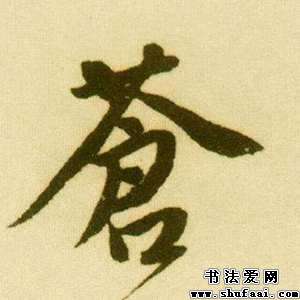 蒼
书法爱网
www.shufaai.com